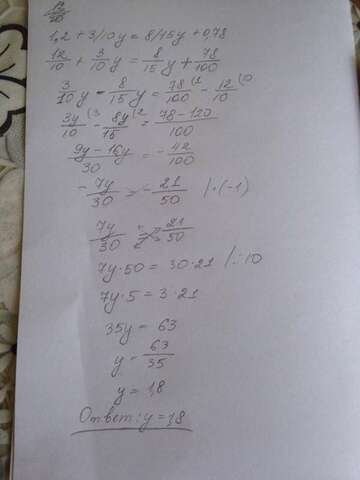 1,2 + 3/10y = 8/15y + 0,78
12/10 + 3/10 y = 8/15 y + 78/100
3/10 y - 8/15 y = 78/100 - 12/10
3y/10 - 8y/15 = 78-120/100
9y-16y/30 = - 42/100
- 7y/30 = - 21/50 | ·(-1)
7y/30 = 21/50
7y·50 = 30·21 | :10
7y·5 = 3·21
35y = 63
y = 63/35
y = 1,8
Ответ: y = 1,8